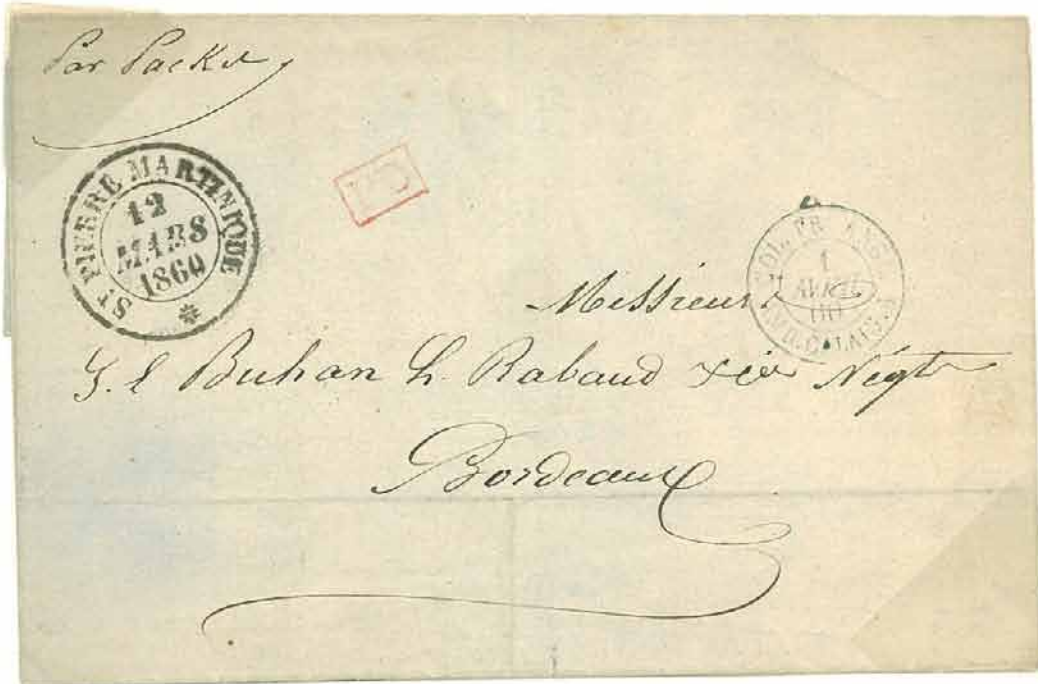 Par Packet
ST PIERRE MARTINIQUE
12
MARS
1860
PD
COL. FR. ANGL.
1
AVRIL
60
AMB. CALAIS
Messieurs
Buhan h. Rabaud Négts
Bordeaux